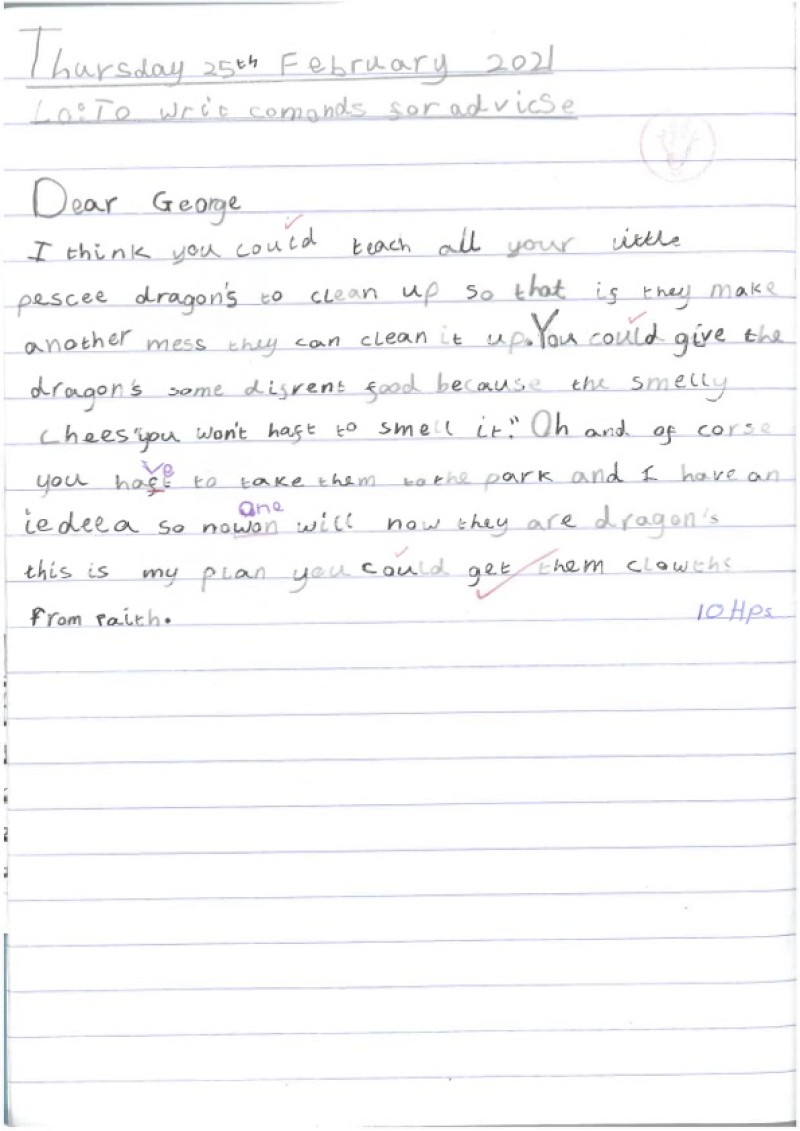 Thursday 25th February 2021
Lo: To writ comands for advicse
Dear George
I think you could teach all your little
pescee dragon's to clean up so that if they make
another mess they can clean it up. You could give the
dragon's some difrent food because the smelly
chees "you won't haft to smell it." Oh and of corse
ve
you haft to take them to the park and I have an
one
iedeea so nowon will now they are dragon's
this is my plan you could get them clowths
from faith.
10 Hps